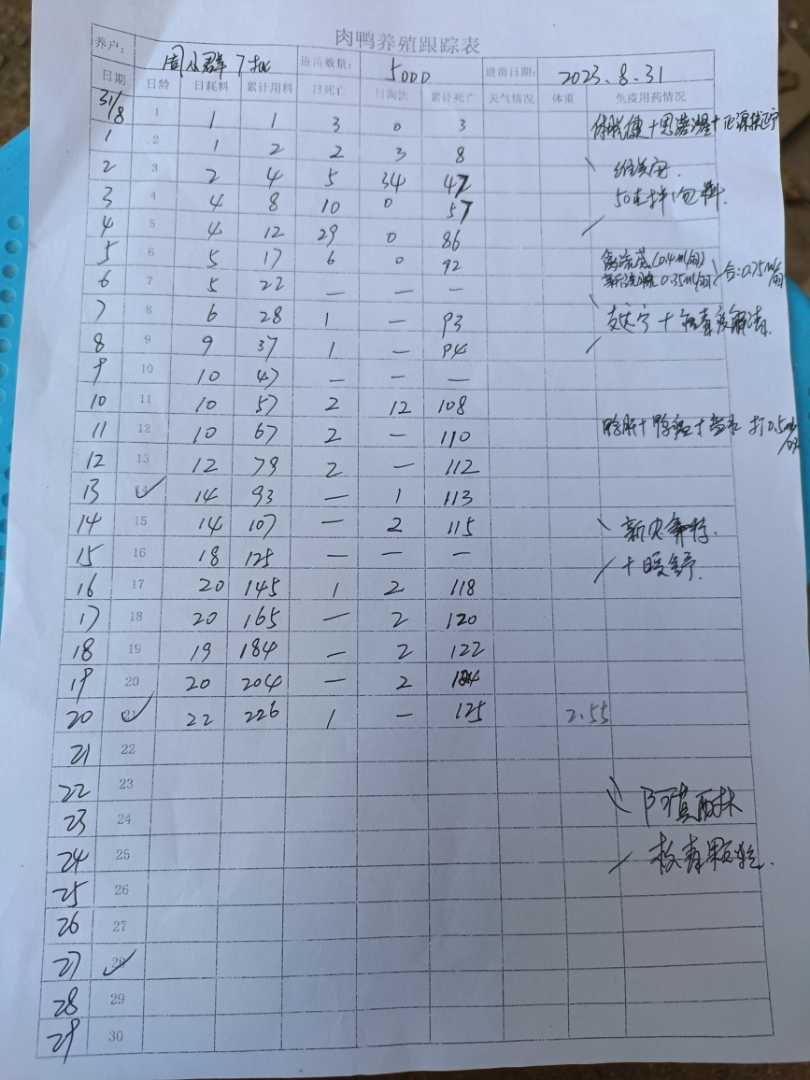 肉鸭养殖跟踪表
养户： 周小群7批 进苗数量： 5000 进苗日期： 2023.8.31
日期 日龄 日耗料 累计用料 日死亡 日淘汰 累计死亡 天气情况 体重 免疫用药情况
31/8 1 1 1 3 0 3
1 2 1 2 2 3 8
2 3 2 4 5 34 47
3 4 4 8 10 0 57
4 5 4 12 29 0 86
5 6 5 17 6 0 92
6 7 5 22 — — —
7 8 6 28 1 — 93
8 9 9 37 1 — 94
9 10 10 47 — — —
10 11 10 57 2 12 108
11 12 10 67 2 — 110
12 13 12 79 2 — 112
13 14 ✓ 14 93 — 1 113
14 15 14 107 — 2 115
15 16 18 125 — — —
16 17 20 145 1 2 118
17 18 20 165 — 2 120
18 19 19 184 — 2 122
19 20 20 204 — 2 124
20 21 ✓ 22 226 1 — 125 2.55
21 22
22 23 阿莫西林
23 24
24 25 板青颗粒.
25 26
26 27
27 28 ✓
28 29
29 30